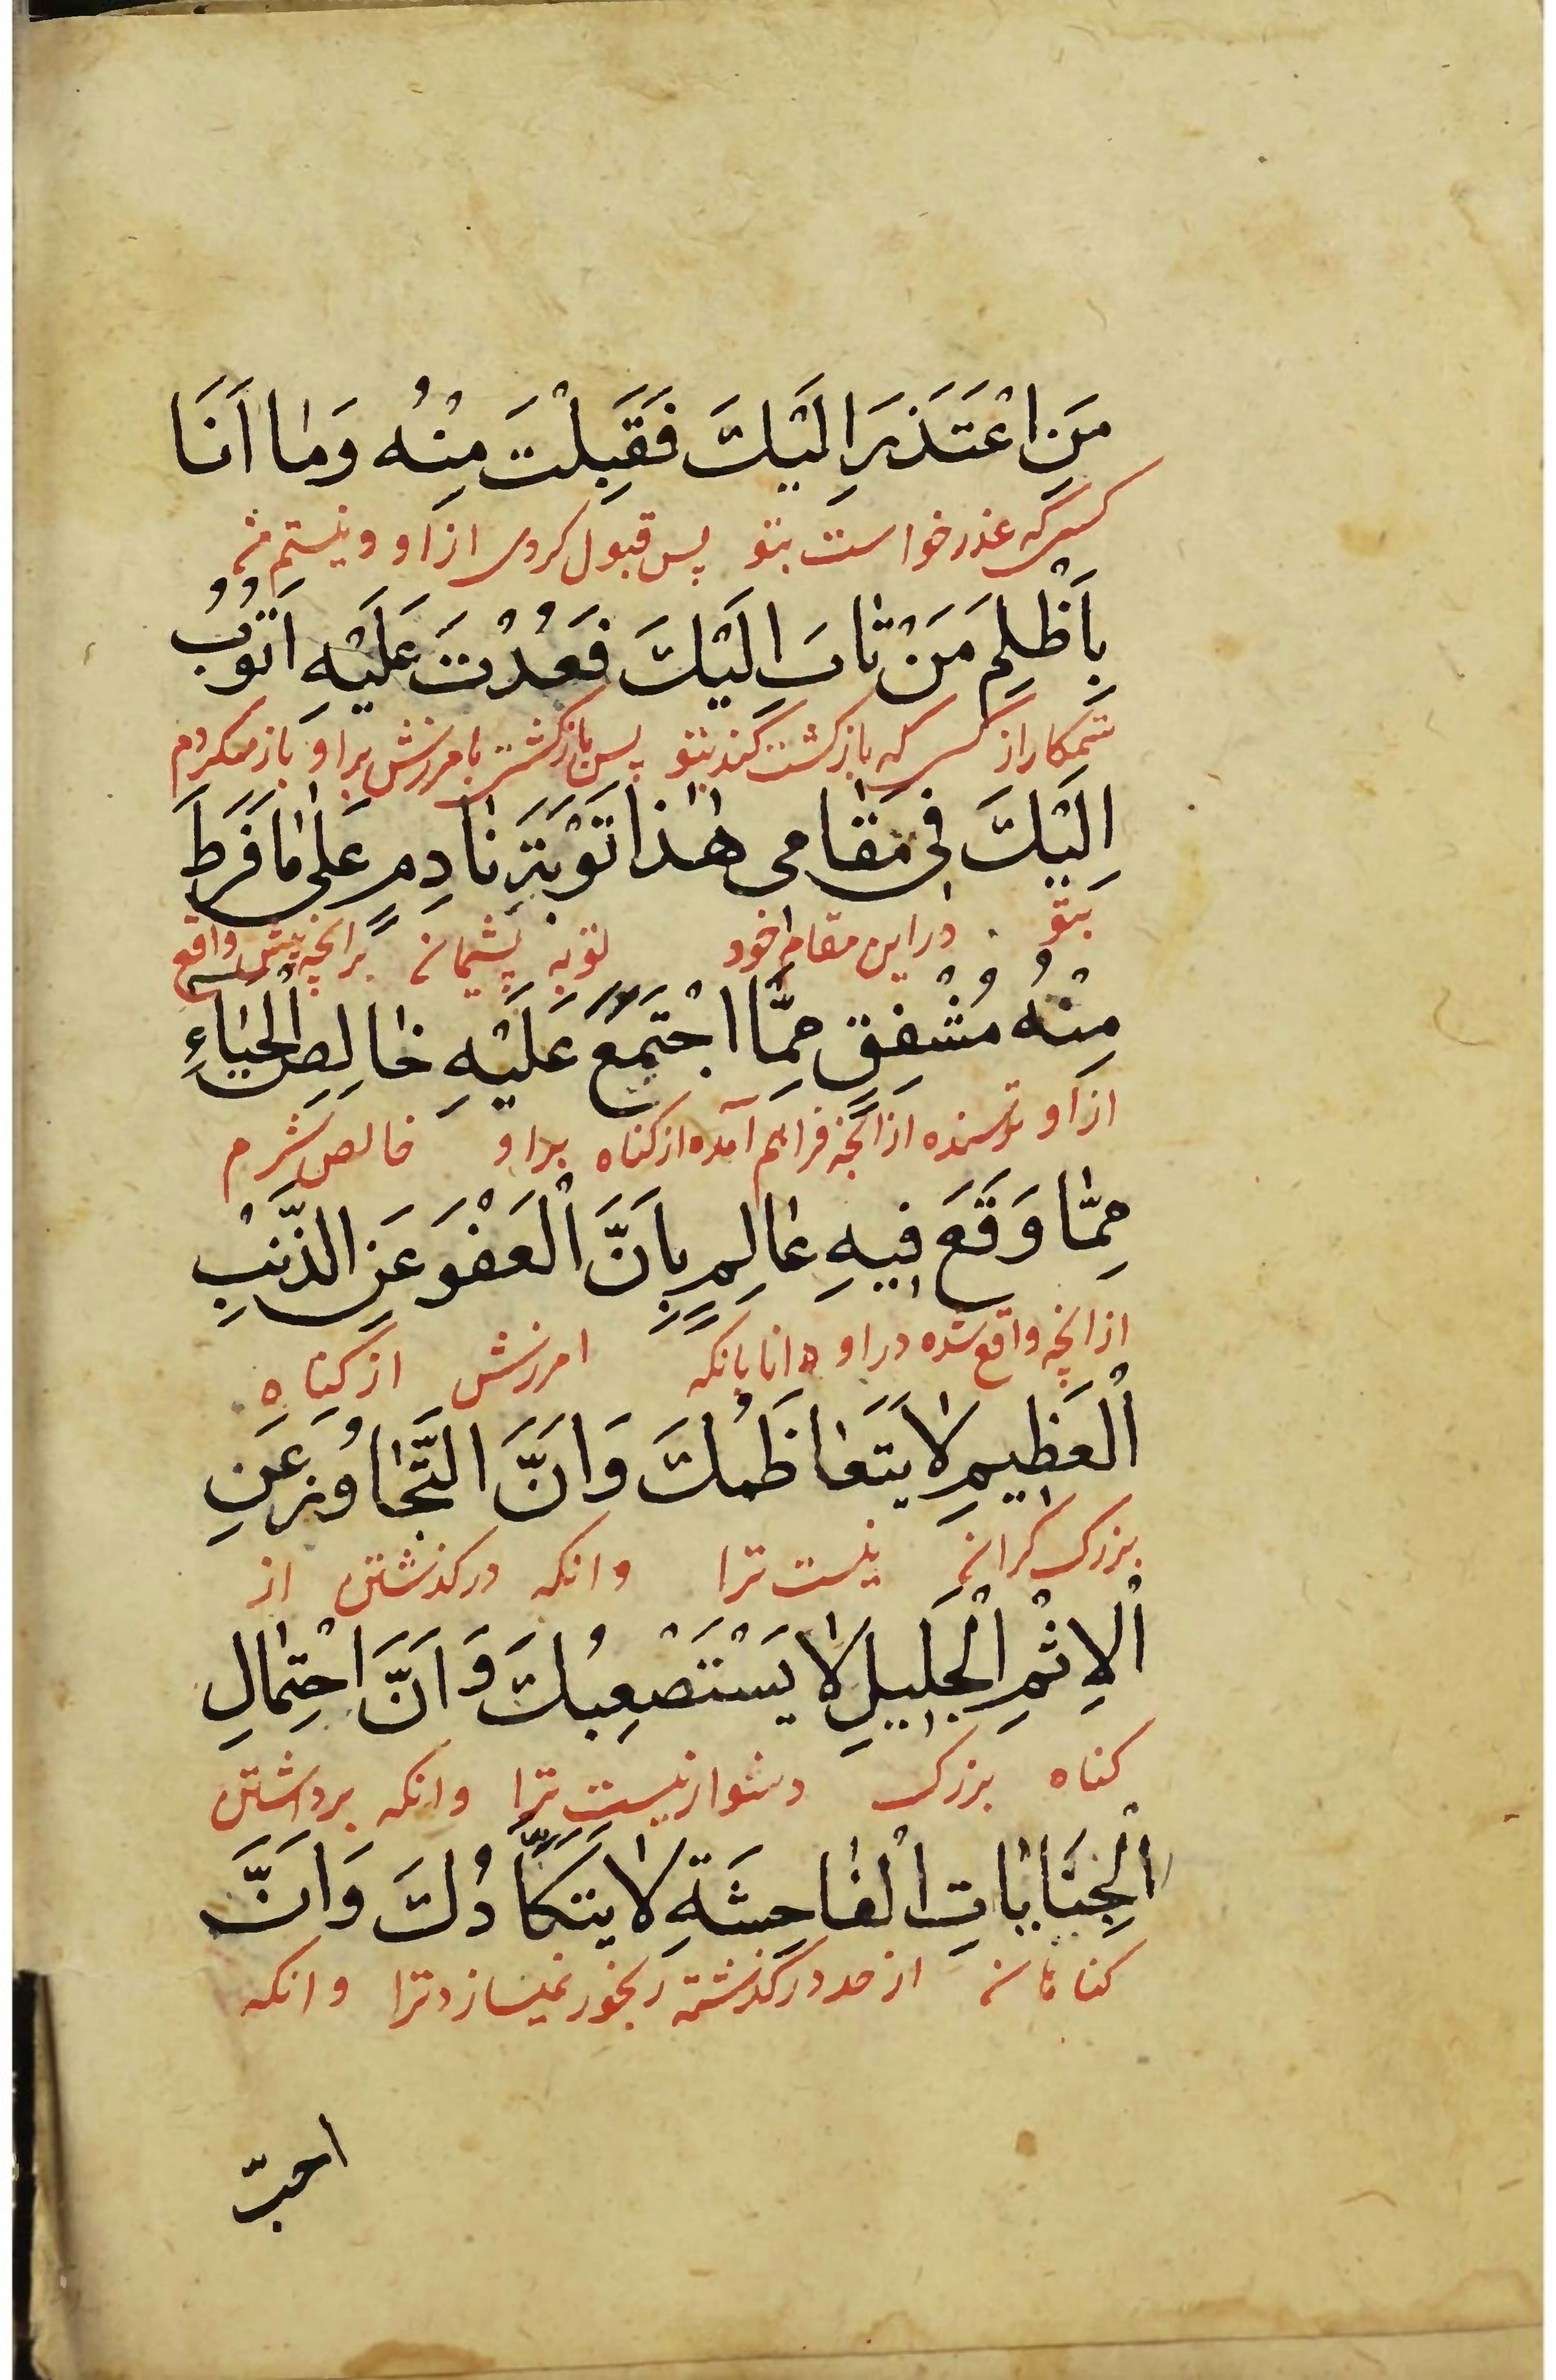 مَنِ اعْتَذَرَ اِلَيْكَ فَقَبِلْتَ مِنْهُ وَمٰا اَنَا
كسی كه عذر خواست بتو پس قبول كردی از او و نیستم من
بِاَظْلَمِ مَنْ تٰابَ اِلَيْكَ فَعُدْتَ عَلَيْهِ اَتُوْبُ
ستمكار از كسی كه بازكشت كند بتو پس بازكشتی بامرزش بر او باز میكردم
اِلَيْكَ فِی مَقٰامی هٰذٰا تَوْبَةَ نٰادِمٍ عَلٰی مٰا فَرَطَ
بتو در این مقام خود توبه پشیمان بر انچه پیش واقع
مِنْهُ مُشْفِقٍ مِمَّا اجْتَمَعَ عَلَيْهِ خٰالِصِ الْحَيٰاءِ
از او ترسنده از انچه فراهم آمده از كناه بر او خالص شرم
مِمّٰا وَقَعَ فِيهِ عٰالِمٍ بِاَنَّ الْعَفْوَ عَنِ الذَّنْبِ
از انچه واقع شده در او دانا بانكه امرزش از كناه
الْعَظِيمِ لٰا يَتَعٰاظَمُكَ وَاَنَّ التَّجٰاوُزَ عَنِ
بزرك كران نیست ترا وانكه دركذشتن از
الْاِثْمِ الْجَلِيلِ لٰا يَسْتَصْعِبُكَ وَاَنَّ احْتِمٰالِ
كناه بزرك دشوار نیست ترا وانكه برداشتن
الْجِنَايٰاتِ الْفٰاحِشَةِ لٰا يَتَكَأَّدُكَ وَاَنَّ
كناهان از حد دركذشته رنجور نمیسازد ترا وانكه
احبّ